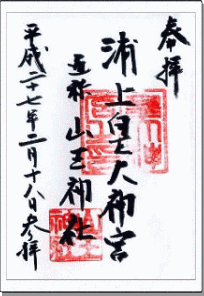 奉拝
浦上皇大神宮
通称 山王神社
平成二十七年二月十八日参拝